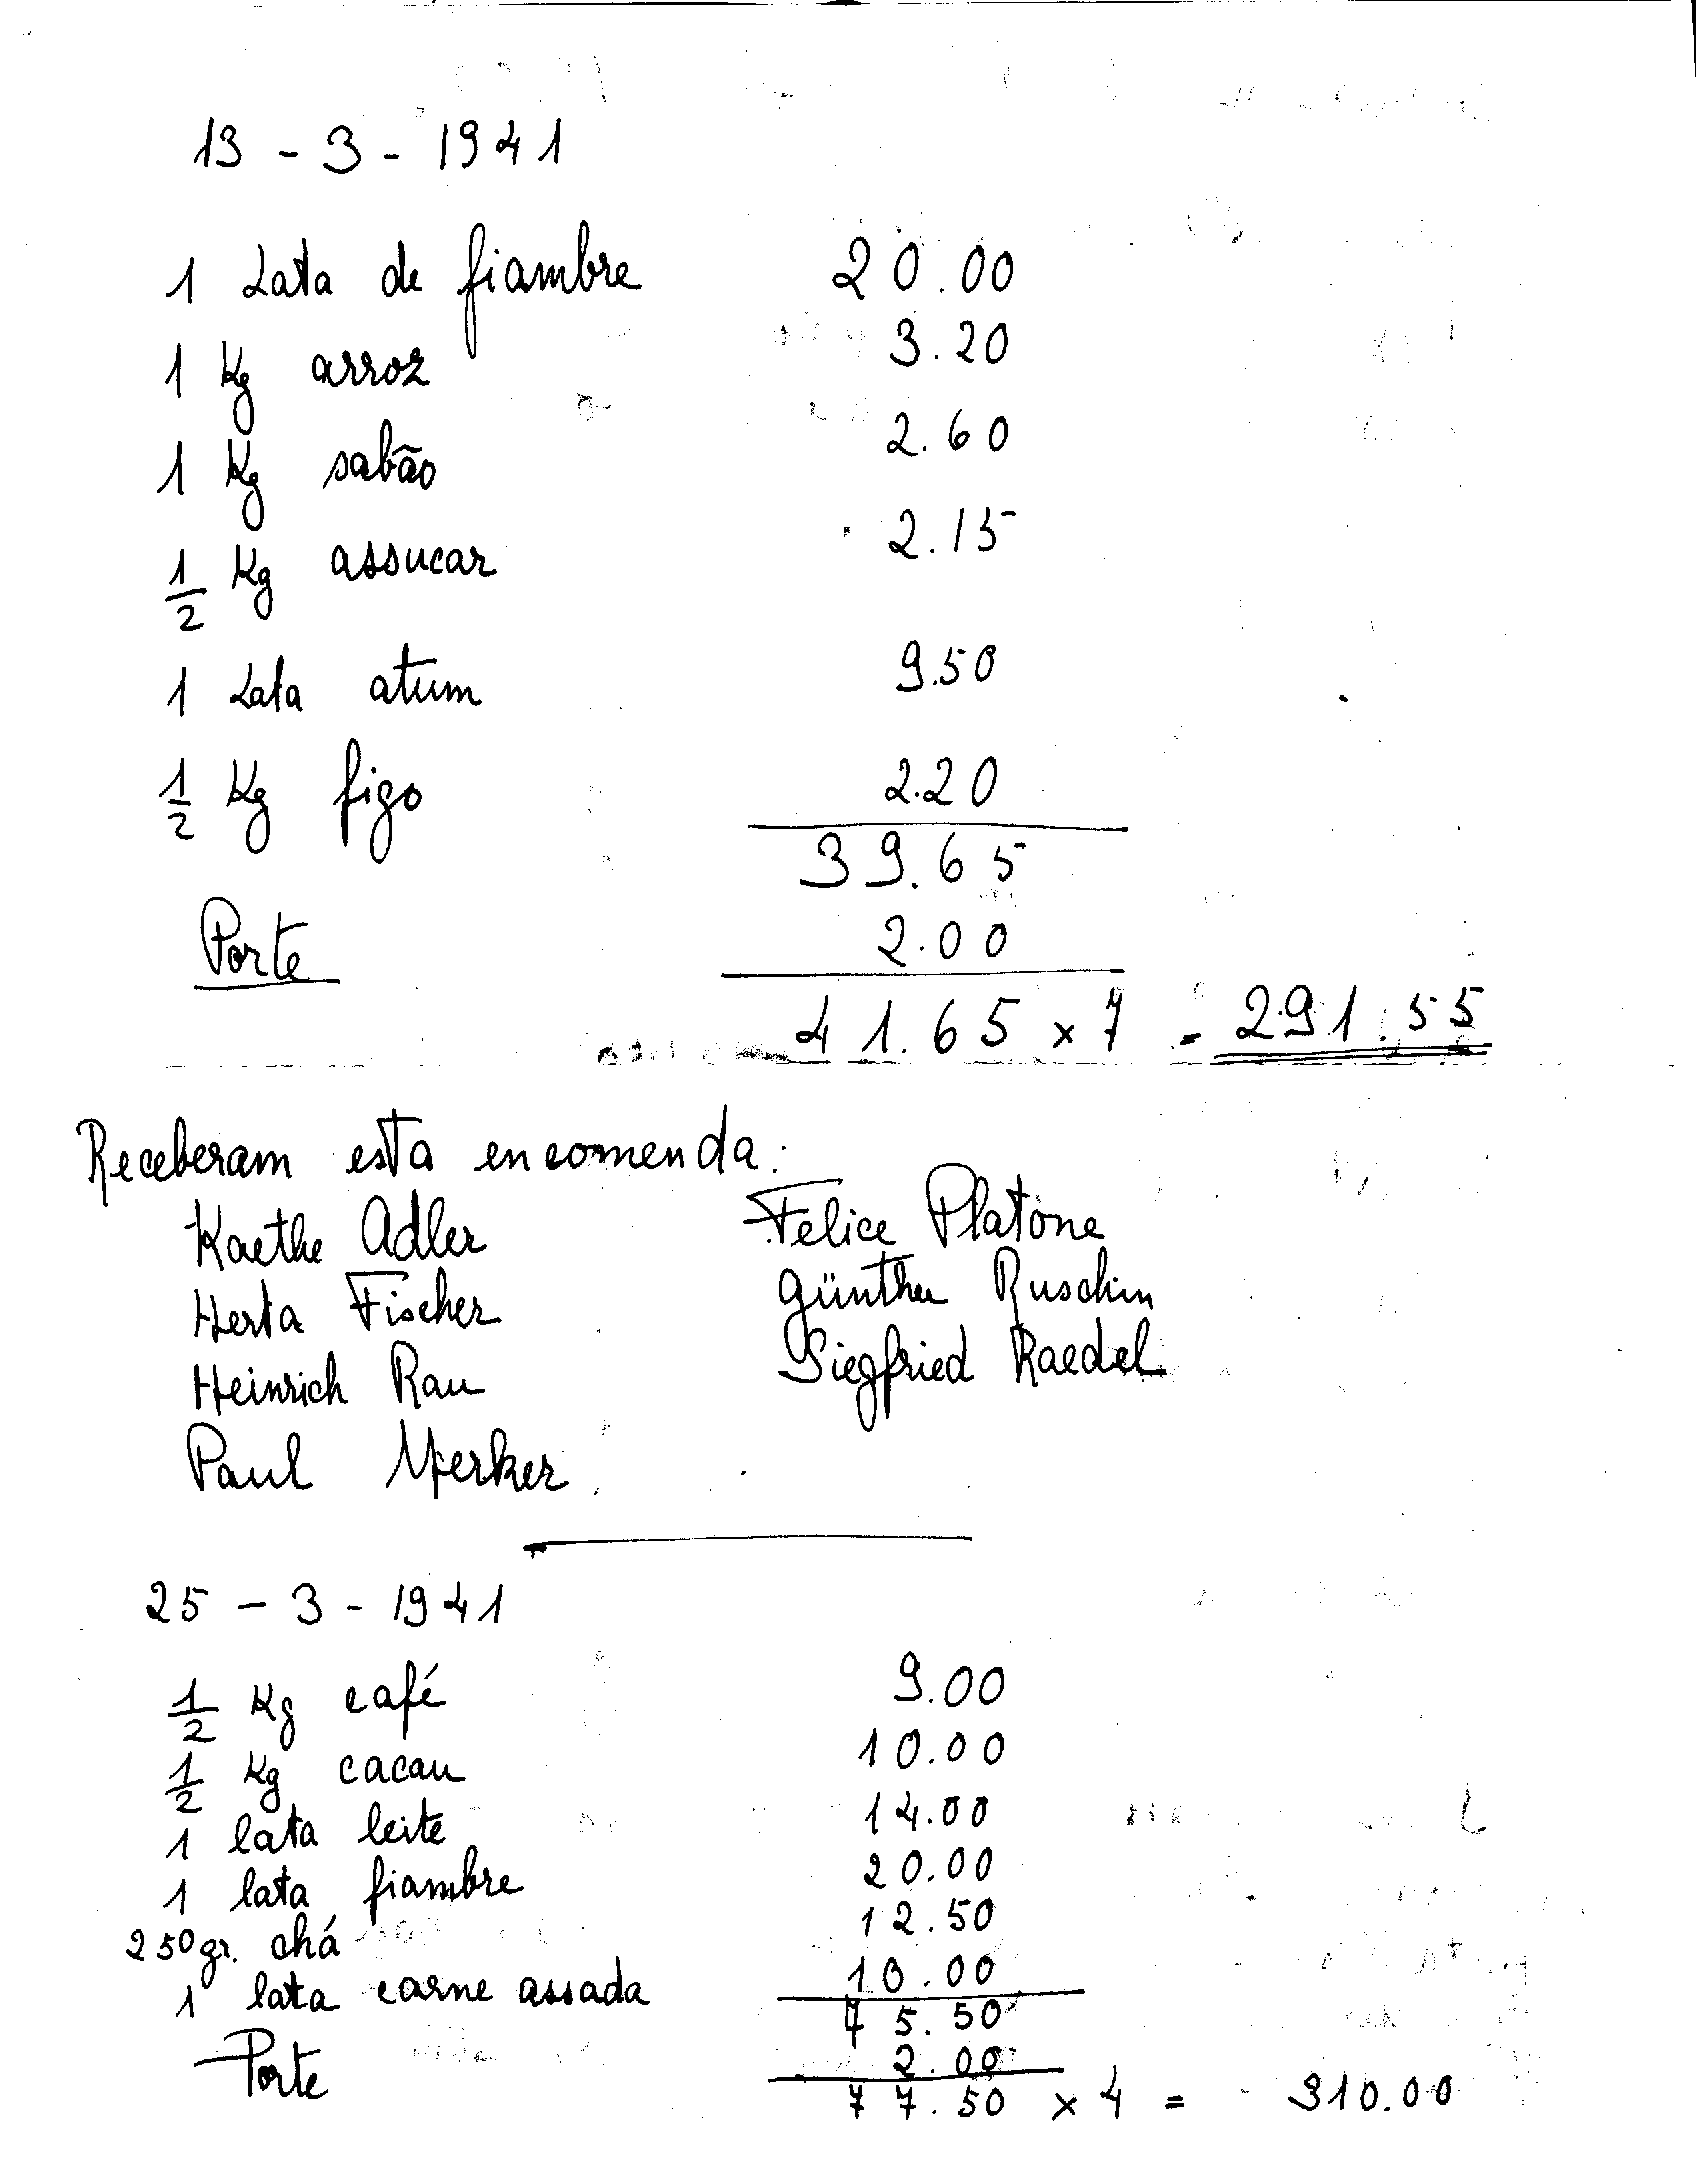 13 - 3 - 1941
1 Lata de fiambre 20.00
1 Kg arroz 3.20
1 Kg sabão 2.60
1/2 Kg assucar 2.15
1 Lata atum 9.50
1/2 Kg figo 2.20
39.65
Porte 2.00
41.65 x 7 = 291.55
Receberam esta encomenda:
Kaethe Adler Felice Platone
Herta Fischer Günther Ruschin
Heinrich Rau Siegfried Raedel
Paul Merker
25 - 3 - 1941
1/2 Kg café 9.00
1/2 Kg cacau 10.00
1 lata leite 14.00
1 lata fiambre 20.00
250 gr. chá 12.50
1 lata carne assada 10.00
75.50
Porte 2.00
77.50 x 4 = 310.00